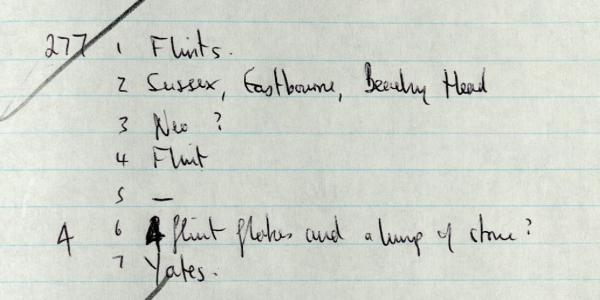 277 1 Flints.
2 Sussex, Eastbourne, Beachy Head
3 Neo ?
4 Flint
5 —
4 6 4 flint flakes and a lump of stone ?
7 Yates.